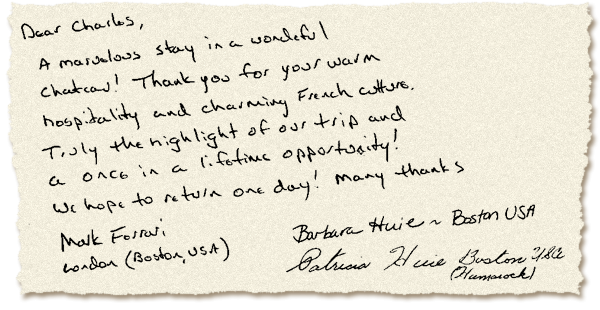 Dear Charles,
A marvelous stay in a wondeful
chateau! Thank you for your warm
hospitality and charming French culture.
Truly the highlight of our trip and
a once in a lifetime opportunity!
We hope to return one day! Many thanks
Mark Ferrari
London (Boston, USA)
Barbara Huie ~ Boston USA
Patricia Huie Boston USA
(Humarock)